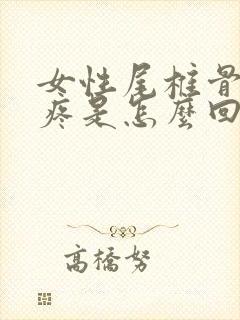 女性尾椎骨
疼是怎麼回
高橋努